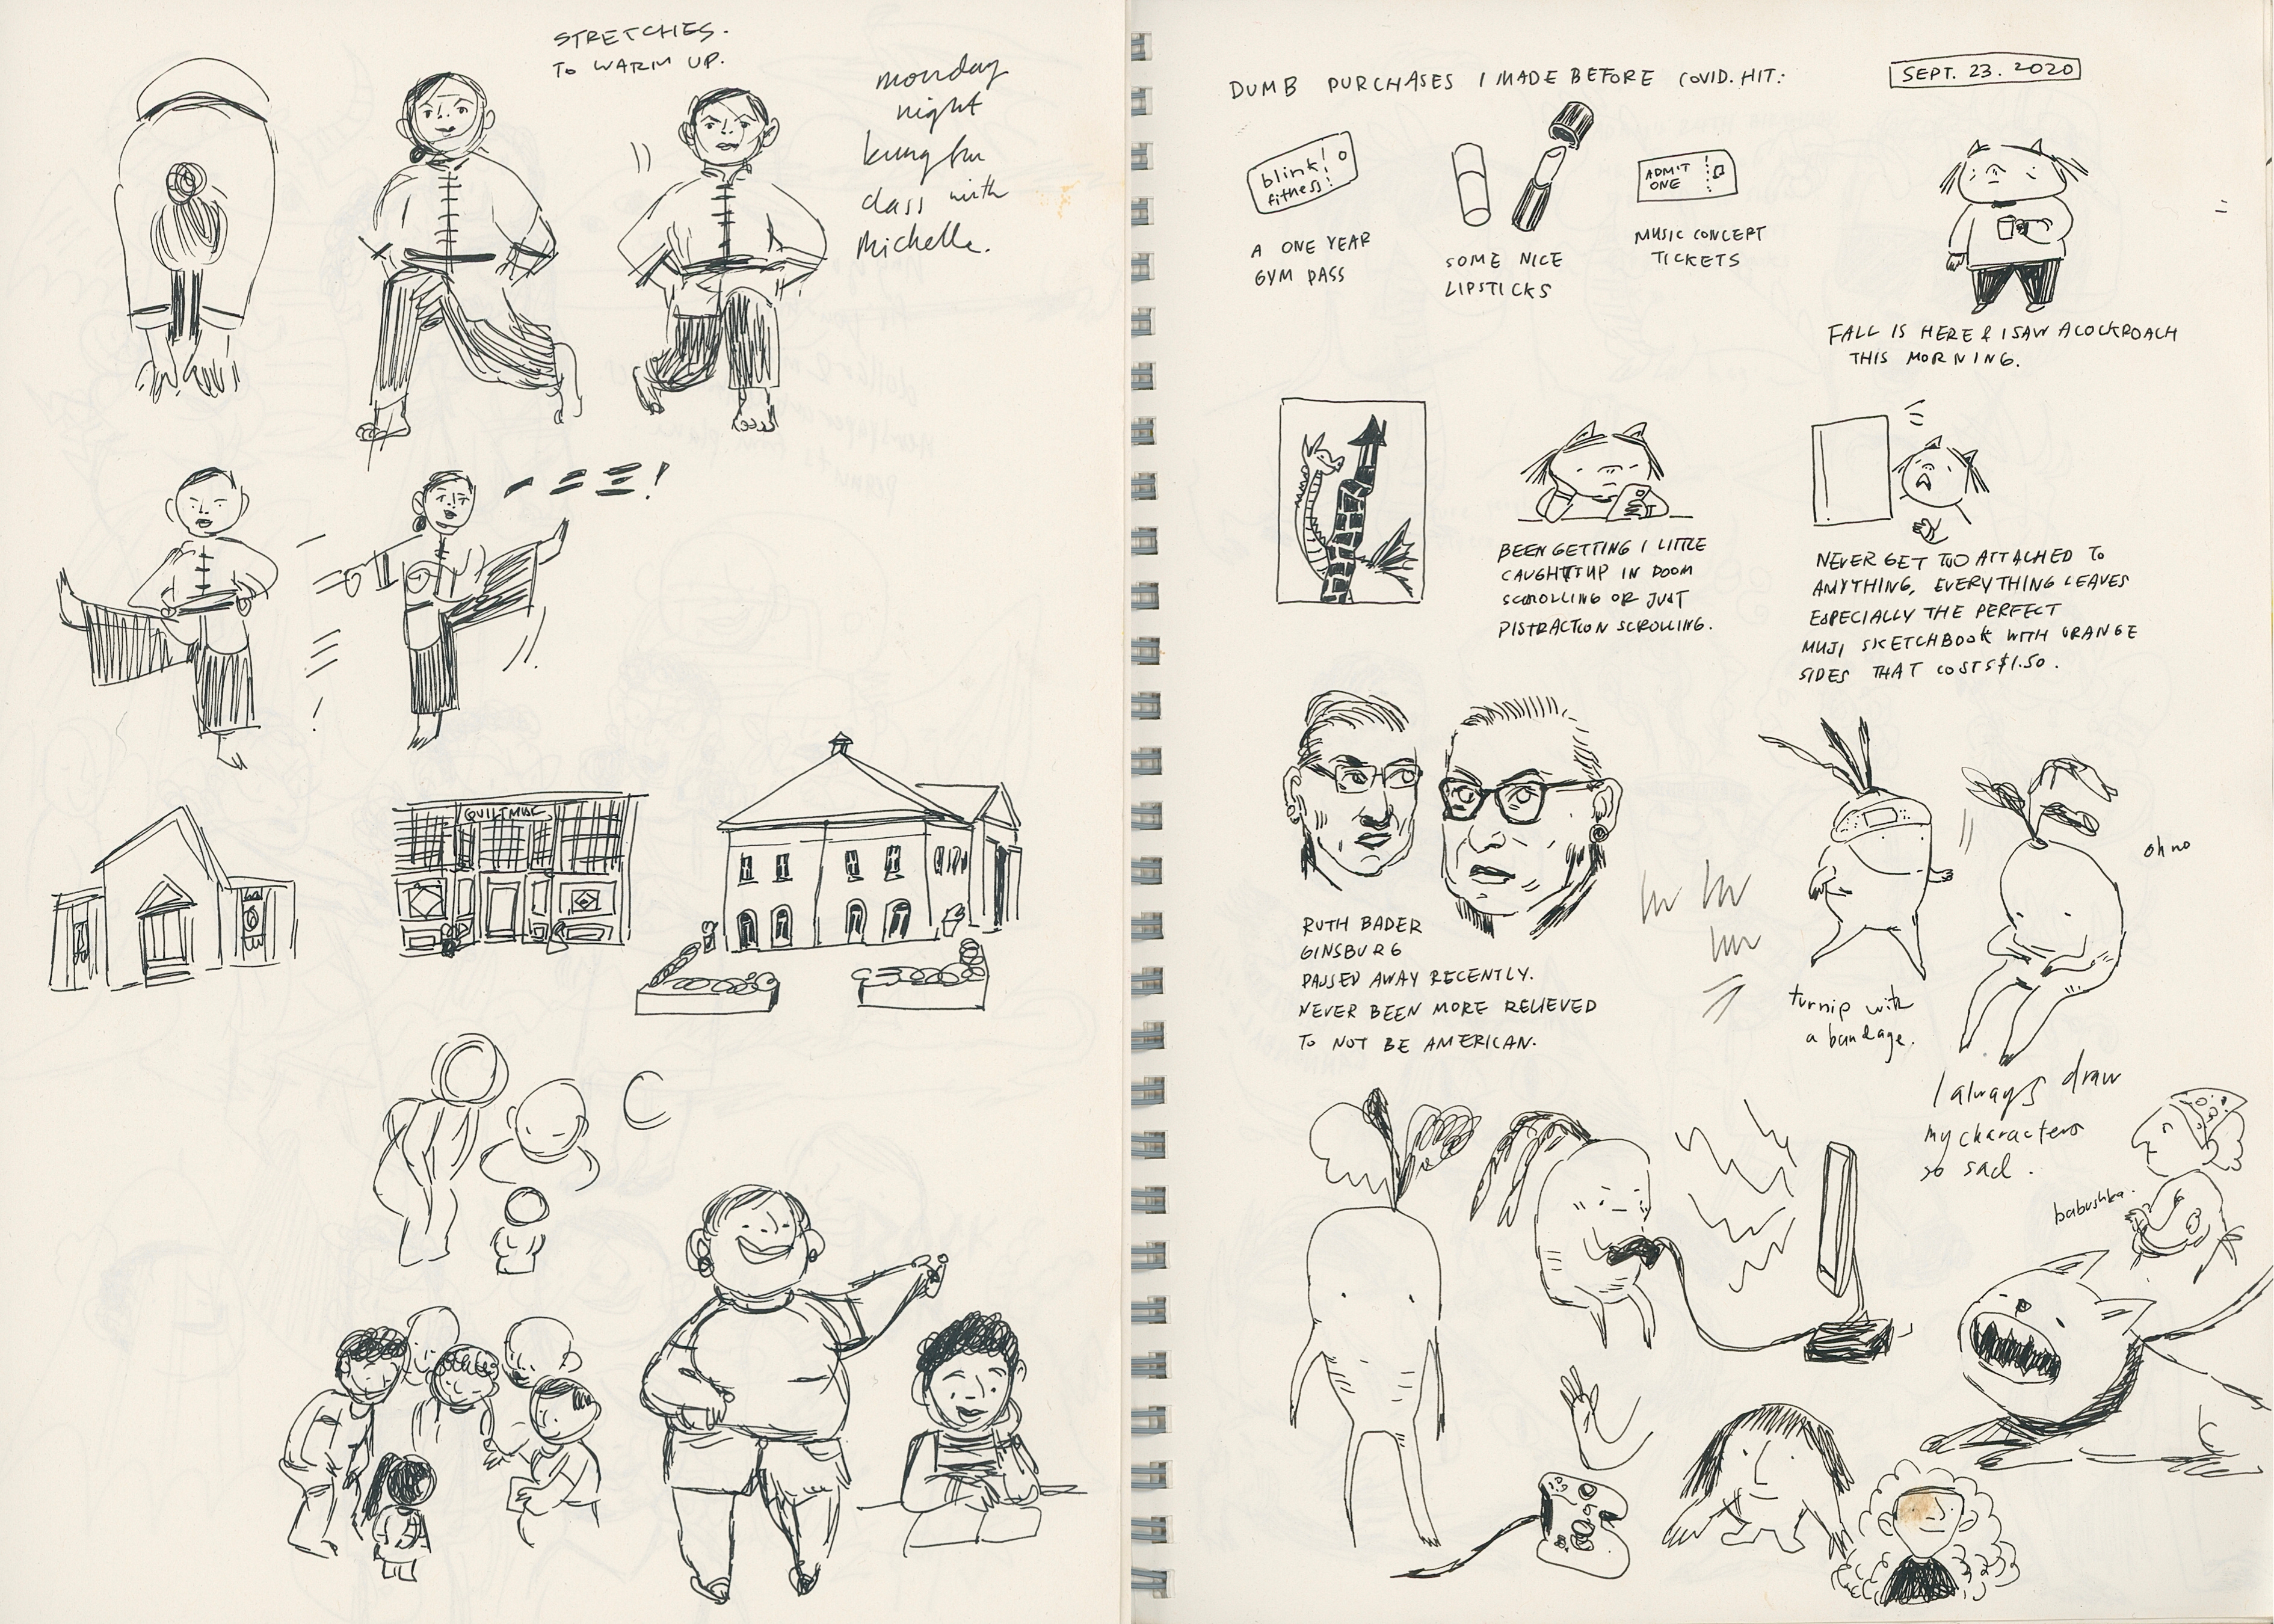 STRETCHES.
TO WARM UP.
monday
night
kung fu
class with
Michelle.
QUILT MUSC
DUMB PURCHASES I MADE BEFORE COVID. HIT:
SEPT. 23. 2020
blink!
fitness!
A ONE YEAR
GYM PASS
SOME NICE
LIPSTICKS
ADMIT
ONE
MUSIC CONCEPT
TICKETS
FALL IS HERE & I SAW A COCKROACH
THIS MORNING.
BEEN GETTING I LITTLE
CAUGHT UP IN DOOM
SCROLLING OR JUST
DISTRACTION SCROLLING.
NEVER GET TOO ATTACHED TO
ANYTHING, EVERYTHING LEAVES
ESPECIALLY THE PERFECT
MUJI SKETCHBOOK WITH ORANGE
SIDES THAT COSTS $1.50.
RUTH BADER
GINSBURG
PASSED AWAY RECENTLY.
NEVER BEEN MORE RELIEVED
TO NOT BE AMERICAN.
oh no
turnip with
a bandage.
I always draw
my characters
so sad.
babushka.